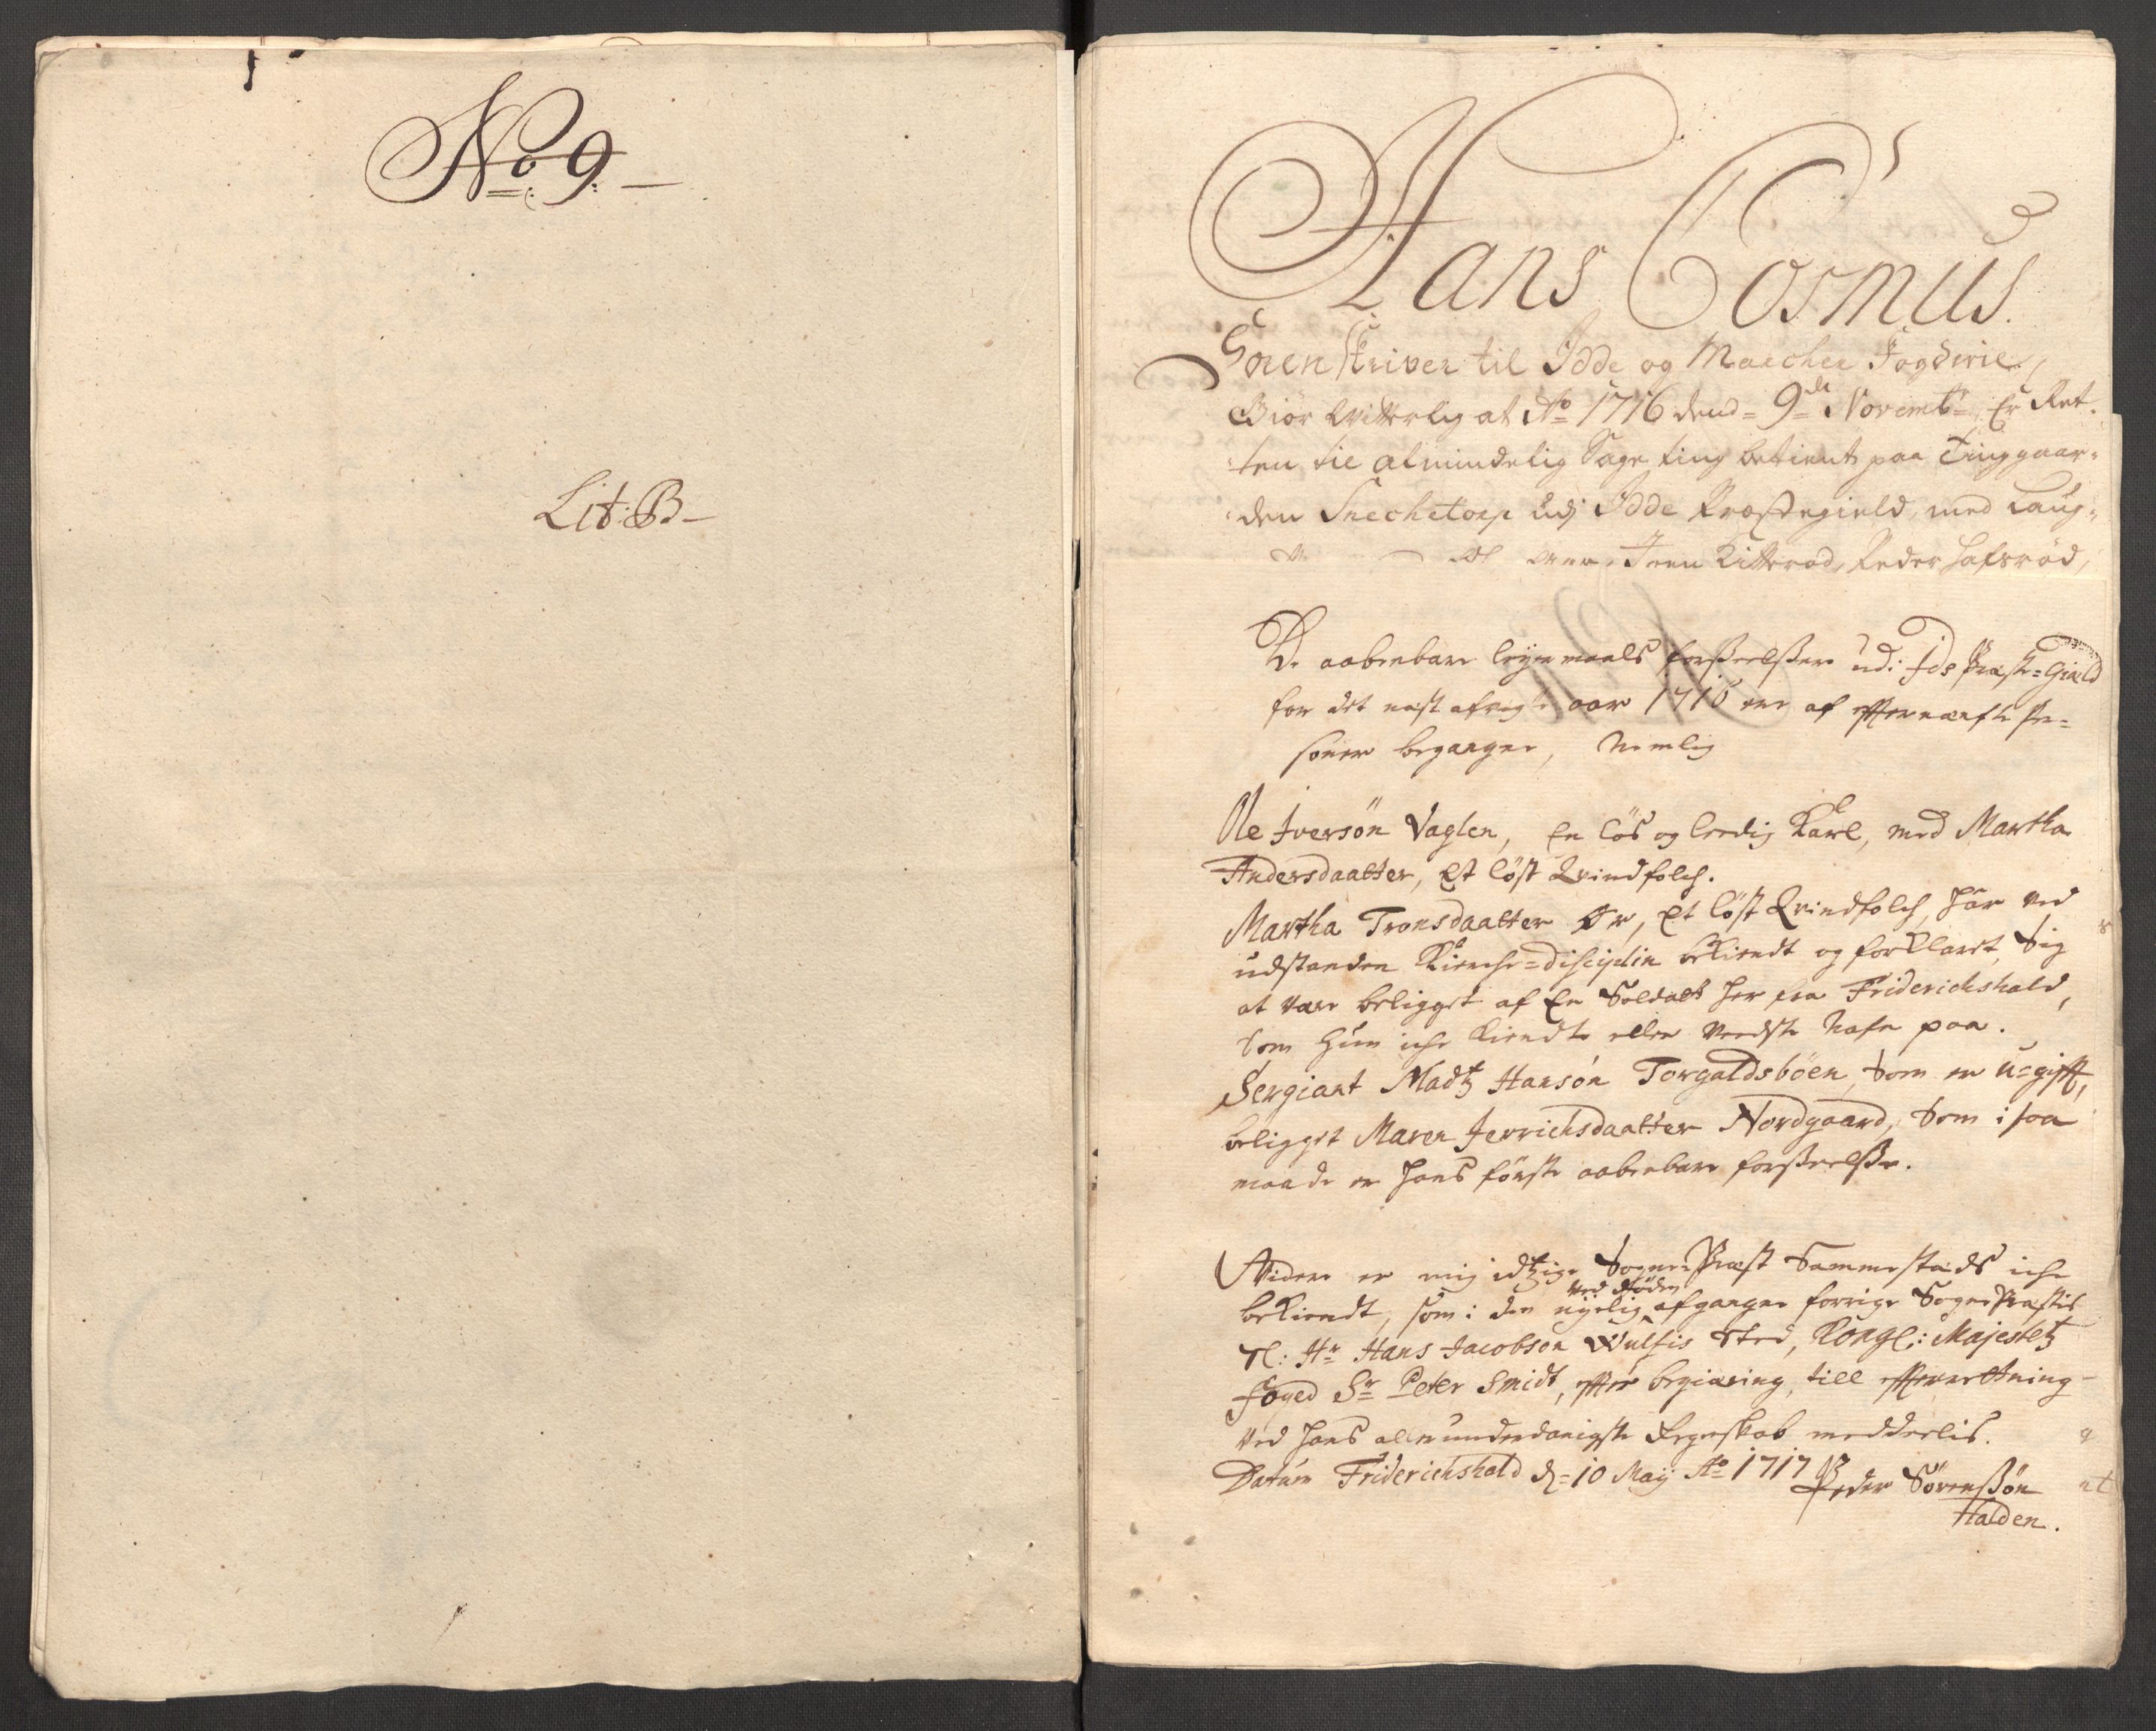 No: 9.
Lit: B
Hans Cosmus.
Sorenskriver til Idde og Marcher Fogderie,
Giör Witterlig at Ao 1716 dend 9de Novembr: Er Ret-
ten til almindelig Sage ting betient paa Tinggaar-
den Snechetorp udj Idde Præstegield, med Laug-
Joen Ritterød, Peder Hafsrød,
De aabenbare leyermaals forseelsser udi Ids Præste-Gield
for det nest afvigte aar 1716 ere af effternæfnte Per-
soner begangne, Nemlig
Ole Iversön Vaglen, En löß og leedig Karl, med Martha
Andersdaatter, Et löst Qvindfolch.
Martha Tronsdaatter Ør, Et löst Qvindfolch, har ved
udstanden Kirche-Disciplin bekiendt og forklaret, Sig
at være beligget af En Soldatt her fra Friderichshald,
som hun iche kiendte eller veedste Nafn paa.
Sergiant Madtz Hansön Torgaldsböen, som er u-gifft,
beligget Maren Jerrichsdaatter Nordgaard, som i saa
maade er hans förste aabenbare forseelsse.
Widere er mig idtzige Sogne-Præst Sammestæds iche
bekiendt, som i den nyelig ved döden afgangne forrige Sogne Præstis
Sl: Hr Hans Jacobsen Wulfis sted, Kongl: Majestetz
foged Sr Peter Smidt, effter begiæring, till effterretning
ved hans allerunderdanigste Regnskab meddeelis.
Datum Friderichshald d: 10 Maij Ao 1717
Peder Sörensßön
Halden.